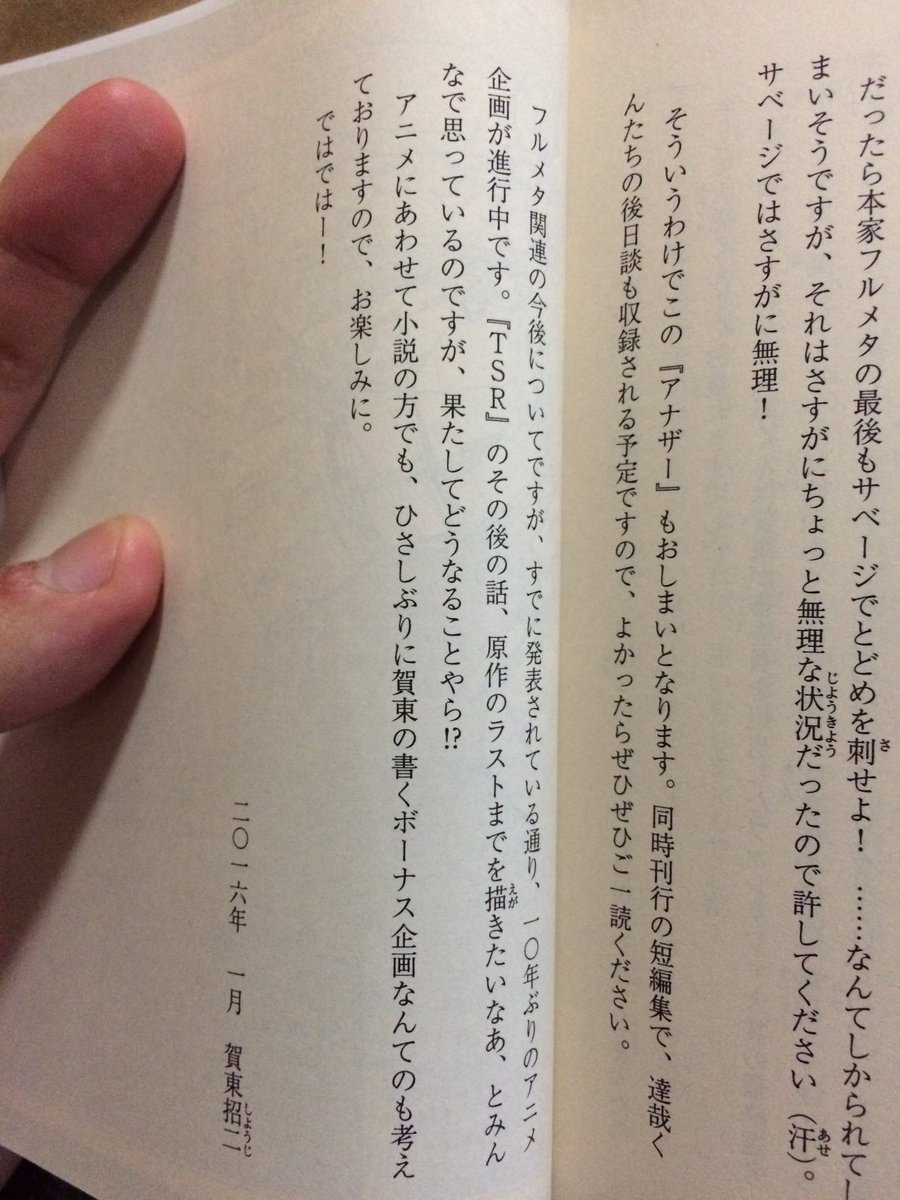 だったら本家フルメタの最後もサベージでとどめを刺せよ！　……なんてしかられてし
まいそうですが、それはさすがにちょっと無理な状況だったので許してください（汗）。
サベージではさすがに無理！
そういうわけでこの『アナザー』もおしまいとなります。同時刊行の短編集で、達哉く
んたちの後日談も収録される予定ですので、よかったらぜひぜひご一読ください。
フルメタ関連の今後についてですが、すでに発表されている通り、一〇年ぶりのアニメ
企画が進行中です。『ＴＳＲ』のその後の話、原作のラストまでを描きたいなあ、とみん
なで思っているのですが、果たしてどうなることやら⁉
アニメにあわせて小説の方でも、ひさしぶりに賀東の書くボーナス企画なんてのも考え
ておりますので、お楽しみに。
ではではー！
二〇一六年　一月　賀東招二